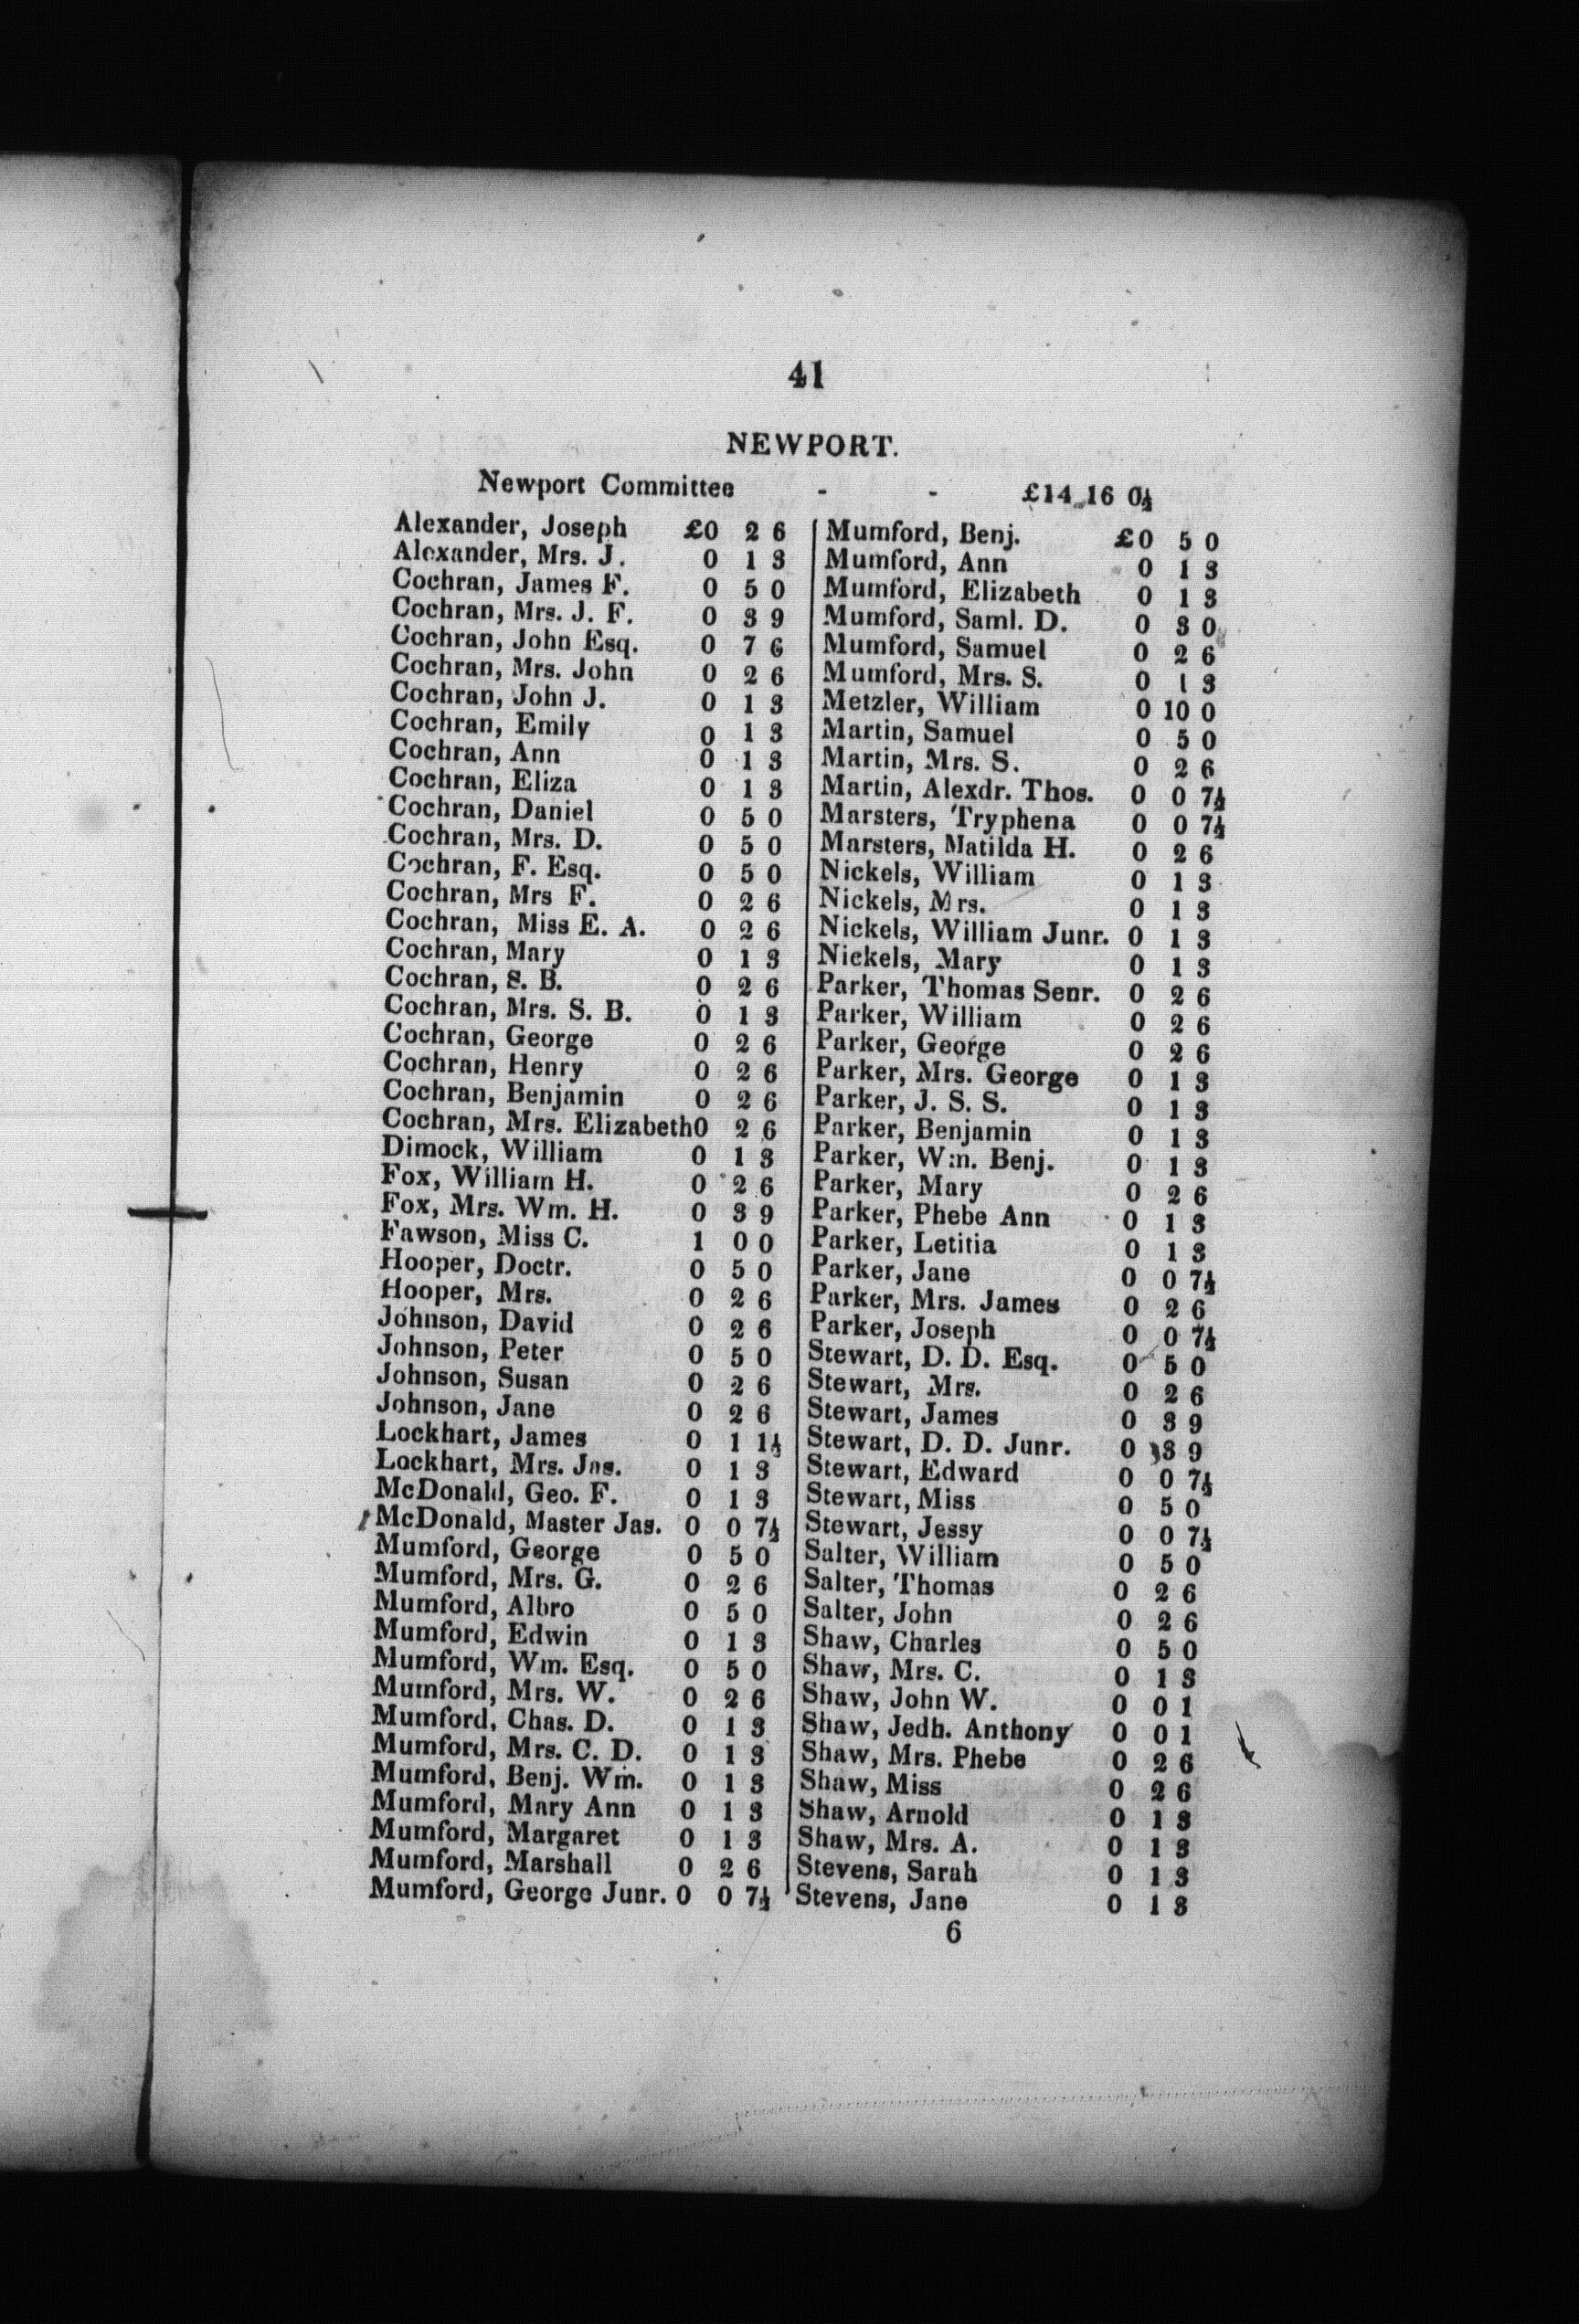 41
NEWPORT.
Newport Committee - - £14 16 0½
Alexander, Joseph £0 2 6
Alexander, Mrs. J. 0 1 3
Cochran, James F. 0 5 0
Cochran, Mrs. J. F. 0 3 9
Cochran, John Esq. 0 7 6
Cochran, Mrs. John 0 2 6
Cochran, John J. 0 1 3
Cochran, Emily 0 1 3
Cochran, Ann 0 1 3
Cochran, Eliza 0 1 3
Cochran, Daniel 0 5 0
Cochran, Mrs. D. 0 5 0
Cochran, F. Esq. 0 5 0
Cochran, Mrs F. 0 2 6
Cochran, Miss E. A. 0 2 6
Cochran, Mary 0 1 3
Cochran, S. B. 0 2 6
Cochran, Mrs. S. B. 0 1 3
Cochran, George 0 2 6
Cochran, Henry 0 2 6
Cochran, Benjamin 0 2 6
Cochran, Mrs. Elizabeth 0 2 6
Dimock, William 0 1 3
Fox, William H. 0 2 6
Fox, Mrs. Wm. H. 0 3 9
Fawson, Miss C. 1 0 0
Hooper, Doctr. 0 5 0
Hooper, Mrs. 0 2 6
Johnson, David 0 2 6
Johnson, Peter 0 5 0
Johnson, Susan 0 2 6
Johnson, Jane 0 2 6
Lockhart, James 0 1 1½
Lockhart, Mrs. Jas. 0 1 3
McDonald, Geo. F. 0 1 3
McDonald, Master Jas. 0 0 7½
Mumford, George 0 5 0
Mumford, Mrs. G. 0 2 6
Mumford, Albro 0 5 0
Mumford, Edwin 0 1 3
Mumford, Wm. Esq. 0 5 0
Mumford, Mrs. W. 0 2 6
Mumford, Chas. D. 0 1 3
Mumford, Mrs. C. D. 0 1 3
Mumford, Benj. Wm. 0 1 3
Mumford, Mary Ann 0 1 3
Mumford, Margaret 0 1 3
Mumford, Marshall 0 2 6
Mumford, George Junr. 0 0 7½
Mumford, Benj. £0 5 0
Mumford, Ann 0 1 3
Mumford, Elizabeth 0 1 3
Mumford, Saml. D. 0 3 0
Mumford, Samuel 0 2 6
Mumford, Mrs. S. 0 1 3
Metzler, William 0 10 0
Martin, Samuel 0 5 0
Martin, Mrs. S. 0 2 6
Martin, Alexdr. Thos. 0 0 7½
Marsters, Tryphena 0 0 7½
Marsters, Matilda H. 0 2 6
Nickels, William 0 1 3
Nickels, Mrs. 0 1 3
Nickels, William Junr. 0 1 3
Nickels, Mary 0 1 3
Parker, Thomas Senr. 0 2 6
Parker, William 0 2 6
Parker, George 0 2 6
Parker, Mrs. George 0 1 3
Parker, J. S. S. 0 1 3
Parker, Benjamin 0 1 3
Parker, Wm. Benj. 0 1 3
Parker, Mary 0 2 6
Parker, Phebe Ann 0 1 3
Parker, Letitia 0 1 3
Parker, Jane 0 0 7½
Parker, Mrs. James 0 2 6
Parker, Joseph 0 0 7½
Stewart, D. D. Esq. 0 5 0
Stewart, Mrs. 0 2 6
Stewart, James 0 3 9
Stewart, D. D. Junr. 0 3 9
Stewart, Edward 0 0 7½
Stewart, Miss 0 5 0
Stewart, Jessy 0 0 7½
Salter, William 0 5 0
Salter, Thomas 0 2 6
Salter, John 0 2 6
Shaw, Charles 0 5 0
Shaw, Mrs. C. 0 1 3
Shaw, John W. 0 0 1
Shaw, Jedh. Anthony 0 0 1
Shaw, Mrs. Phebe 0 2 6
Shaw, Miss 0 2 6
Shaw, Arnold 0 1 3
Shaw, Mrs. A. 0 1 3
Stevens, Sarah 0 1 3
Stevens, Jane 0 1 3
6